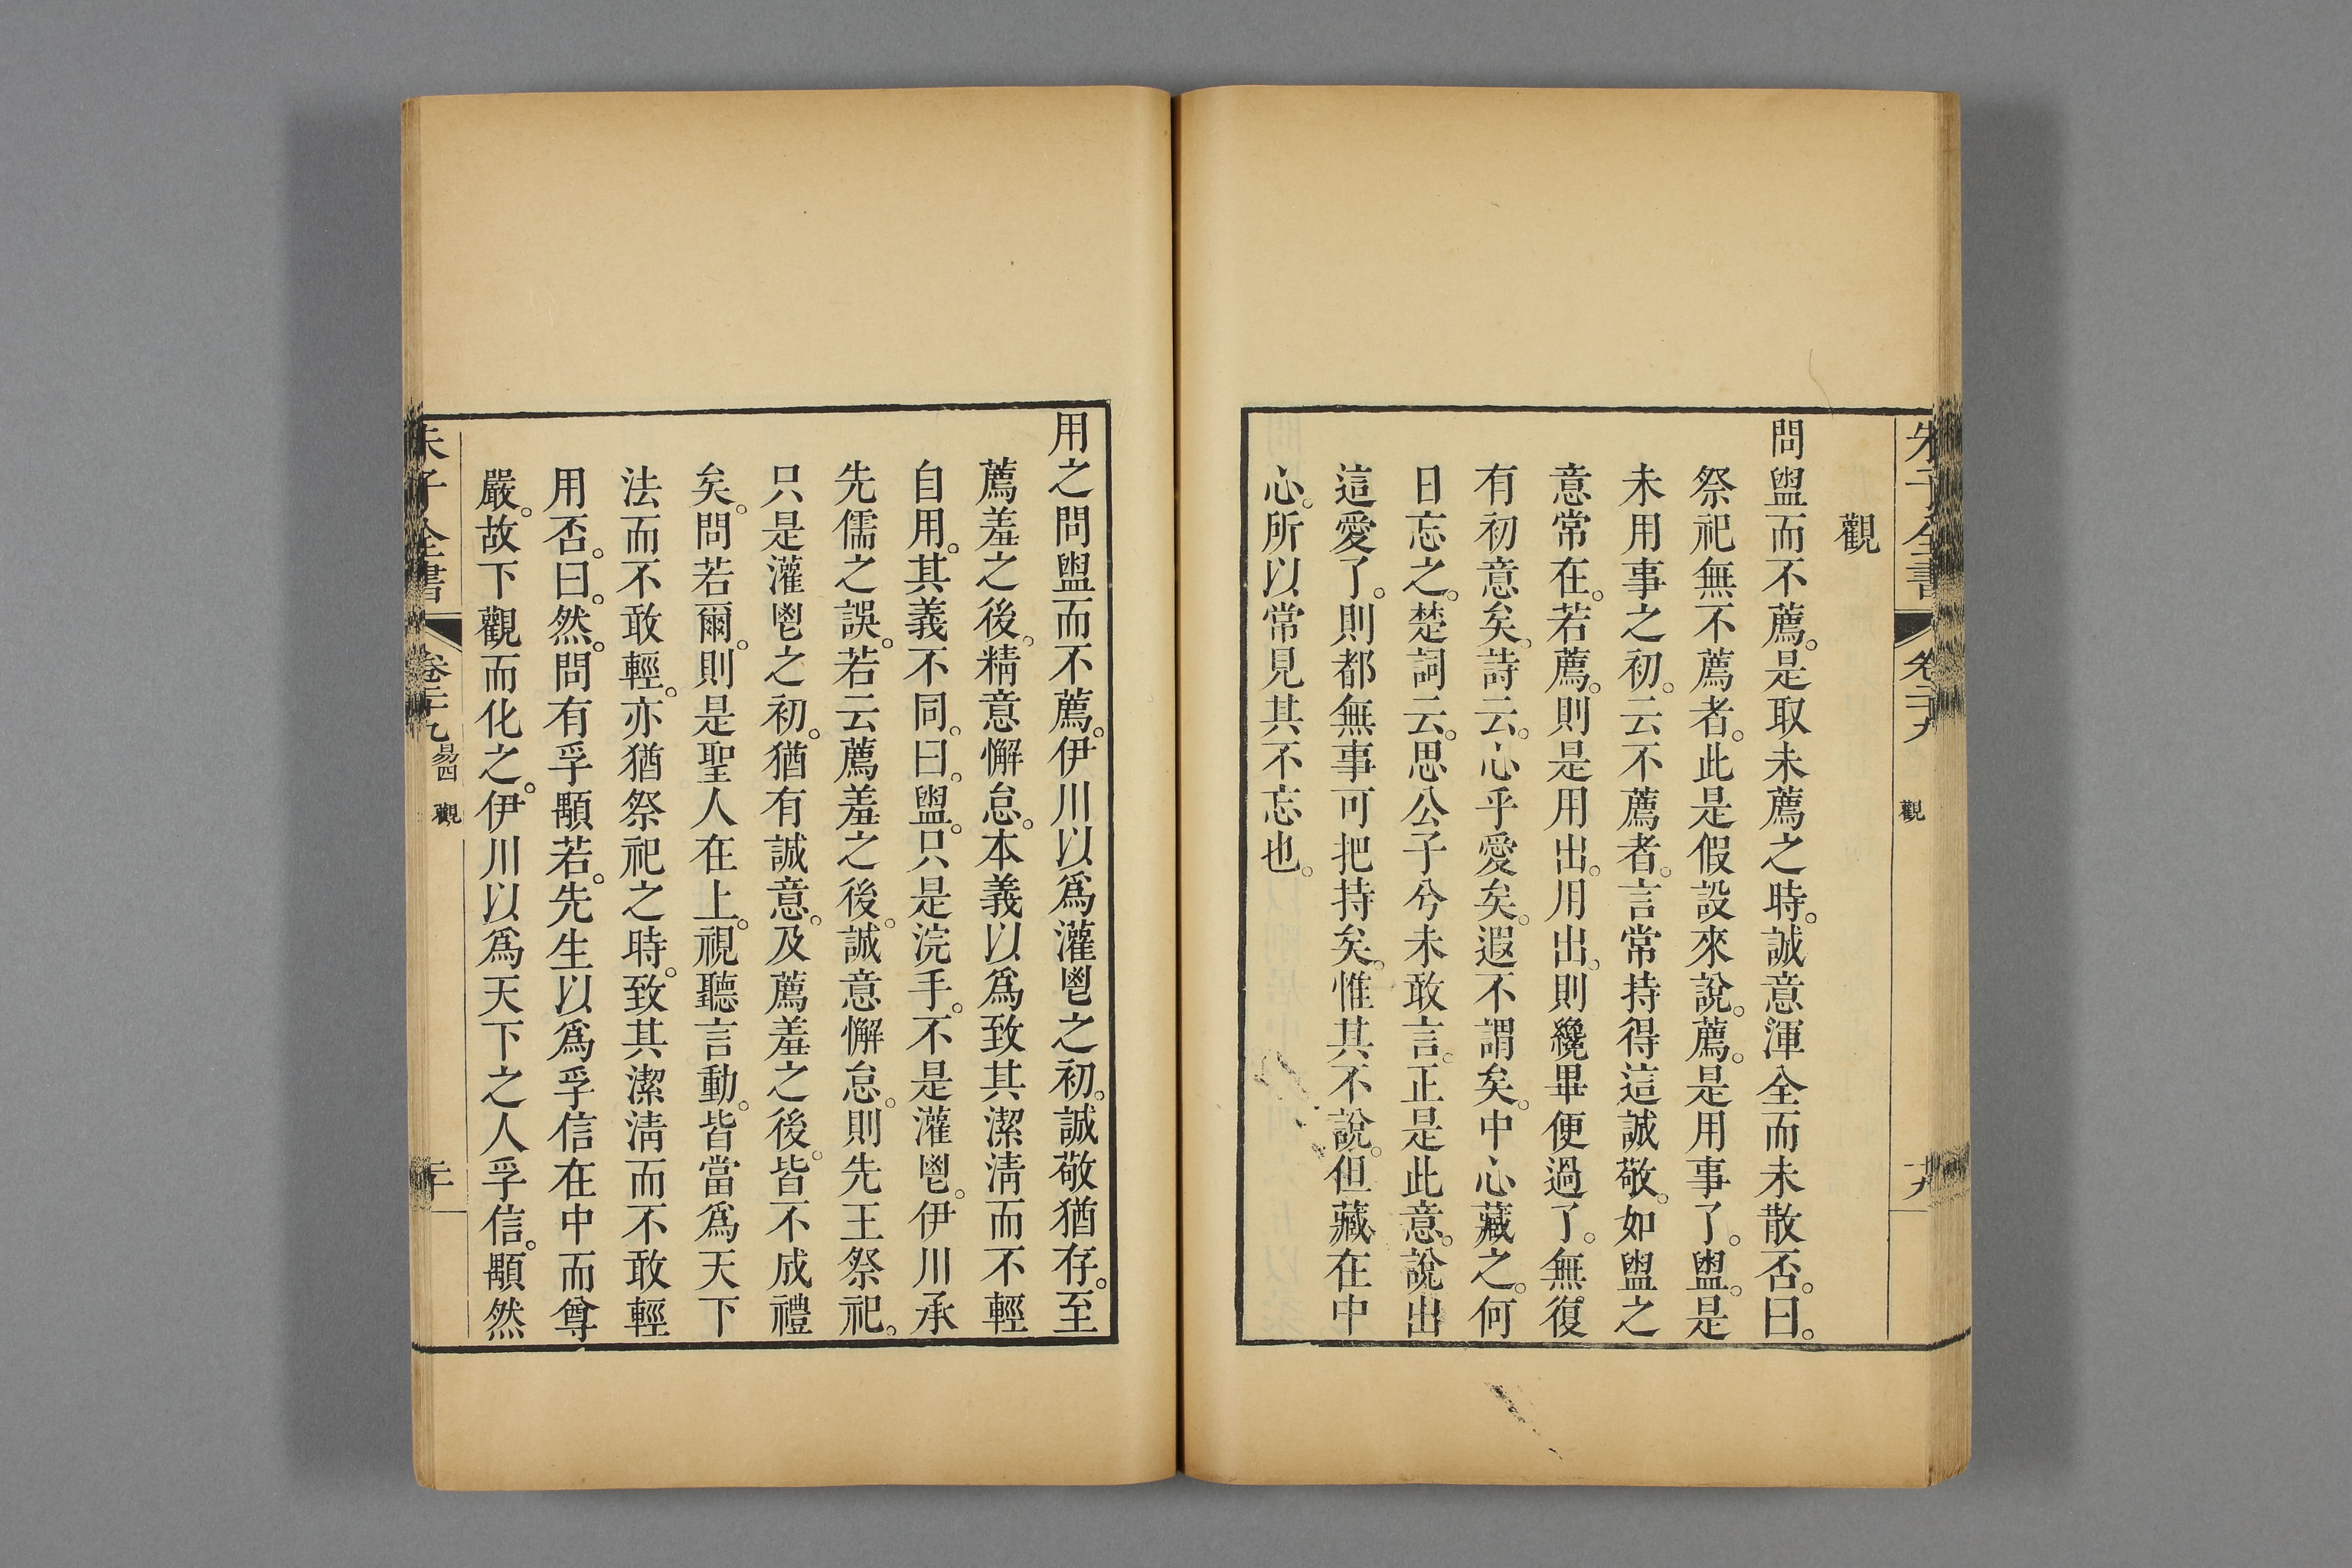 朱子全書 卷二十九 觀 十九
觀
問盥而不薦。是取未薦之時。誠意渾全而未散否。曰。
祭祀無不薦者。此是假設來說。薦。是用事了。盥。是
未用事之初。云不薦者。言常持得這誠敬。如盥之
意常在。若薦。則是用出。用出。則纔畢便過了。無復
有初意矣。詩云。心乎愛矣。遐不謂矣。中心藏之。何
日忘之。楚詞云。思公子兮未敢言。正是此意。說出
這愛了。則都無事可把持矣。惟其不說。但藏在中
心。所以常見其不忘也。
用之問盥而不薦。伊川以爲灌鬯之初。誠敬猶存。至
薦羞之後。精意懈怠。本義以爲致其潔淸而不輕
自用。其義不同。曰。盥。只是浣手。不是灌鬯。伊川承
先儒之誤。若云薦羞之後。誠意懈怠。則先王祭祀。
只是灌鬯之初。猶有誠意。及薦羞之後。皆不成禮
矣。問若爾。則是聖人在上。視聽言動。皆當爲天下
法而不敢輕。亦猶祭祀之時。致其潔淸而不敢輕
用否。曰。然。問有孚顒若。先生以爲孚信在中而尊
嚴。故下觀而化之。伊川以爲天下之人孚信。顒然
朱子全書 卷二十九 易四 觀 二十